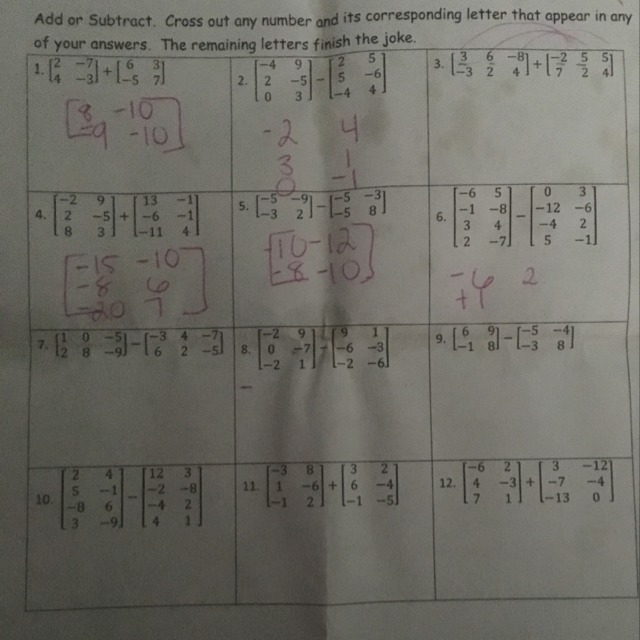 Add or Subtract. Cross out any number and its corresponding letter that appear in any
of your answers. The remaining letters finish the joke.
1. [2 -7; 4 -3] + [6 3; -5 7]
[8 -10; -9 -10]
2. [-4 9; 2 -5; 0 3] - [2 5; 5 -6; -4 4]
-2 4
3 1
0 -1
3. [3 6 -8; -3 2 4] + [-2 5 5; 7 2 4]
4. [-2 9; 2 -5; 8 3] + [13 -1; -6 -1; -11 4]
[-15 -10; -8 6; -20 7]
5. [-5 -9; -3 2] - [-5 -3; -5 8]
[10 -12; -8 -10]
6. [-6 5; -1 -8; 3 4; 2 -7] - [0 3; -12 -6; -4 2; 5 -1]
-6 2
7. [1 0 -5; 2 8 -9] - [-3 4 -7; 6 2 -5]
8. [-2 9; 0 -7; -2 1] - [9 1; -6 -3; -2 -6]
9. [6 9; -1 8] - [-5 -4; -3 8]
10. [2 4; 5 -1; -8 6; 3 -9] - [12 3; -2 -8; -4 2; 4 1]
11. [-3 8; 1 -6; -1 2] + [3 2; 6 -4; -1 -5]
12. [-6 2; 4 -3; 7 1] + [3 -12; -7 -4; -13 0]